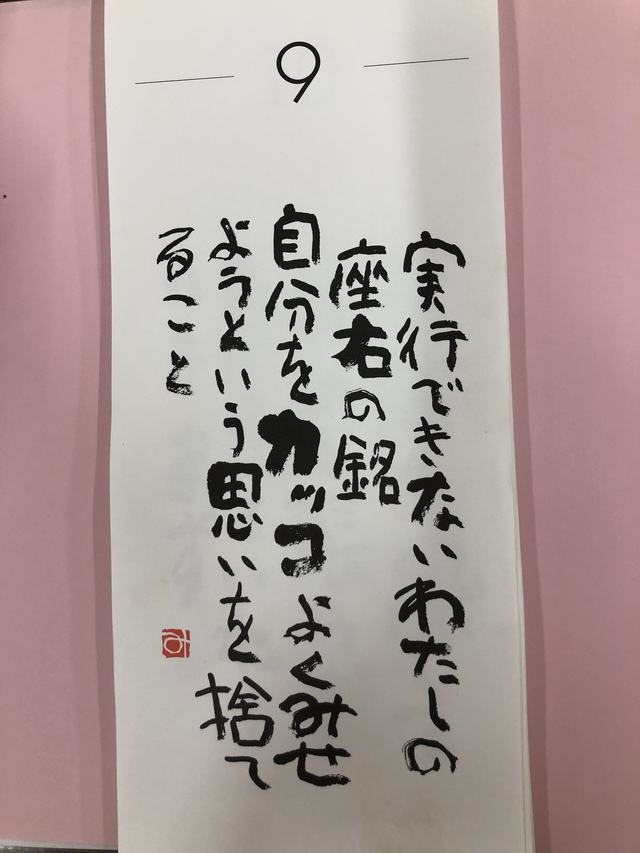 9
実行できないわたしの
座右の銘
自分をカッコよくみせ
ようという思いを捨て
ること
み